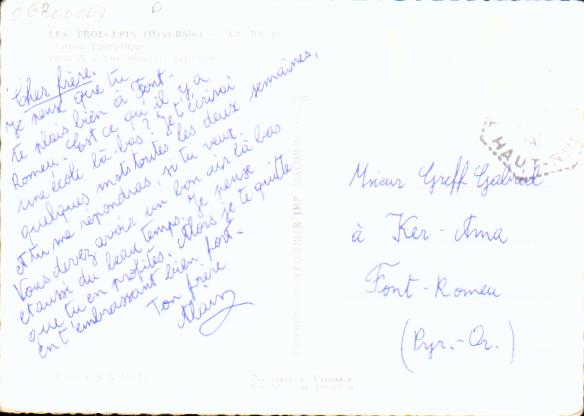 OGB00067
LES TROIS-EPIS (Haut-Rhin) - Alt.
Station Touristique
Cher frère.
Je pense que tu
te plais bien à Font-
Romeu. Est ce qu'il y a
une école là-bas? Je t'écrirai
quelques mots toutes les deux semaines,
et tu me répondras, si tu veux.
Vous devez avoir un bon air là bas
et aussi du beau temps. Je pense
que tu en profites. Alors je te quitte
en t'embrassant bien fort.
Ton frère
Alain
HAUT-RHIN
Msieur Greff Gabriel
à Ker-Ama
Font-Romeu
(Pyr.-Or.)